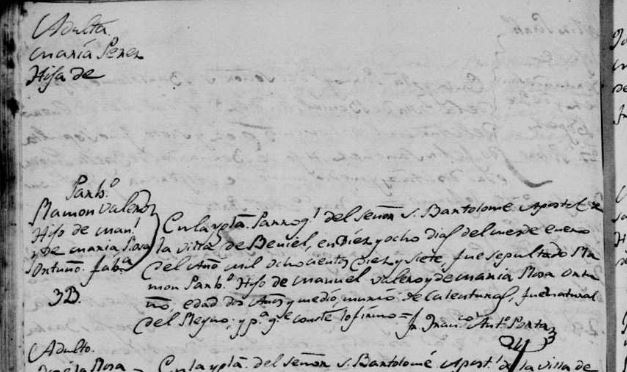 Adulta
Maria Perez
Hija de
Parb.º
Ramon Valero
Hijo de Man.l
y de Maria Rosa
Ontuño. fab.a
3B.
En la ygla. Parroq.l del Señor S. Bartolomé Apostol de
la villa de Beniel, en Diez y ocho dias del mes de enero
del Año mil ochocientos Diez y siete, fue sepultado Ra
mon Parb.º Hijo de Manuel Valero y de Maria Rosa Ontu
ño, edad dos Años y medio, murio de Calenturas, fue natural
del Reyno; y p.a q.e conste lo firmo = Fr. Fran.co Ant.º
Adulto.
Rosa
En la ygla. del Señor S. Bartolomé Apost.l de la villa de